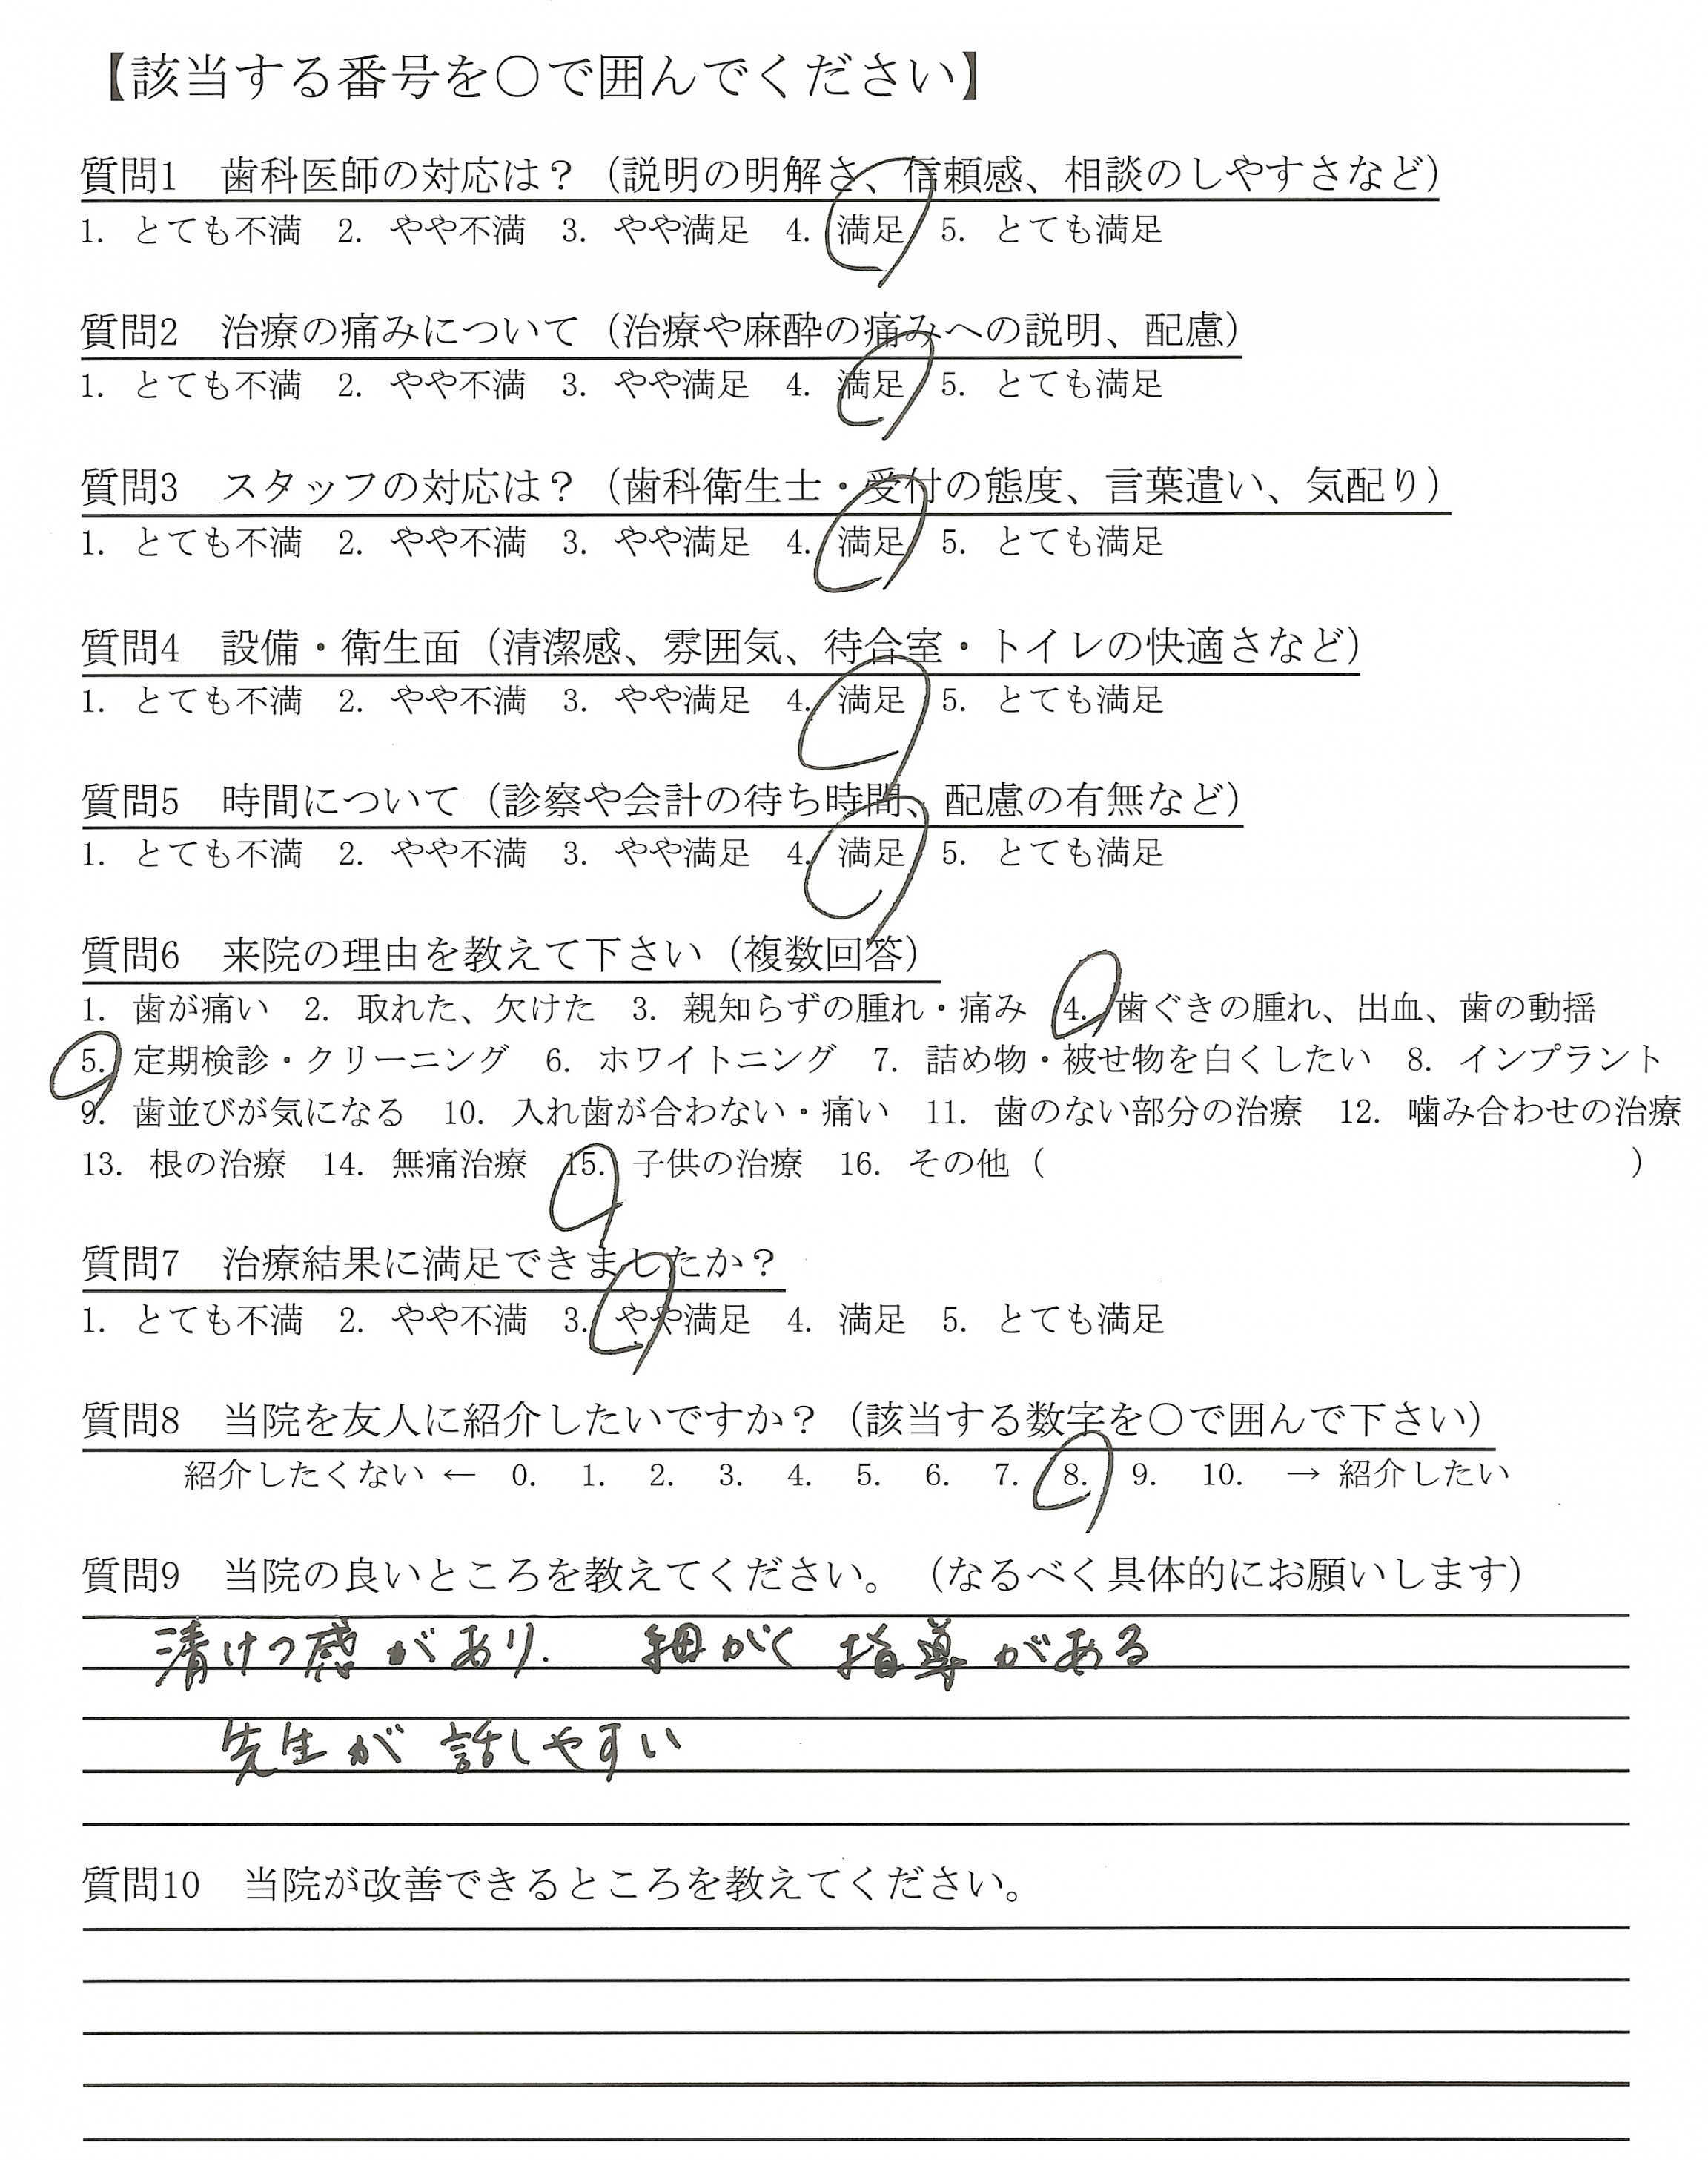 【該当する番号を○で囲んでください】
質問1　歯科医師の対応は？（説明の明解さ、信頼感、相談のしやすさなど）
1. とても不満　2. やや不満　3. やや満足　4. 満足　5. とても満足
質問2　治療の痛みについて（治療や麻酔の痛みへの説明、配慮）
1. とても不満　2. やや不満　3. やや満足　4. 満足　5. とても満足
質問3　スタッフの対応は？（歯科衛生士・受付の態度、言葉遣い、気配り）
1. とても不満　2. やや不満　3. やや満足　4. 満足　5. とても満足
質問4　設備・衛生面（清潔感、雰囲気、待合室・トイレの快適さなど）
1. とても不満　2. やや不満　3. やや満足　4. 満足　5. とても満足
質問5　時間について（診察や会計の待ち時間、配慮の有無など）
1. とても不満　2. やや不満　3. やや満足　4. 満足　5. とても満足
質問6　来院の理由を教えて下さい（複数回答）
1. 歯が痛い　2. 取れた、欠けた　3. 親知らずの腫れ・痛み　4. 歯ぐきの腫れ、出血、歯の動揺
5. 定期検診・クリーニング　6. ホワイトニング　7. 詰め物・被せ物を白くしたい　8. インプラント
9. 歯並びが気になる　10. 入れ歯が合わない・痛い　11. 歯のない部分の治療　12. 噛み合わせの治療
13. 根の治療　14. 無痛治療　15. 子供の治療　16. その他（　　　　　　　　　　）
質問7　治療結果に満足できましたか？
1. とても不満　2. やや不満　3. やや満足　4. 満足　5. とても満足
質問8　当院を友人に紹介したいですか？（該当する数字を○で囲んで下さい）
紹介したくない ← 0.　1.　2.　3.　4.　5.　6.　7.　8.　9.　10.　→ 紹介したい
質問9　当院の良いところを教えてください。（なるべく具体的にお願いします）
清けつ感があり.　細がく 指導がある
先生が 話しやすい
質問10　当院が改善できるところを教えてください。